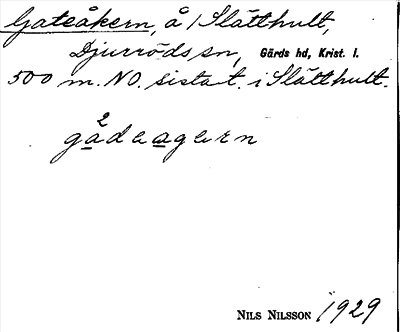 Gateåkern, å 1 Slätthult,
Djurröds sn, Gärds hd, Krist. l.
500 m. NO. sista t. i Slätthult.
2
gådeagern
NILS NILSSON 1929